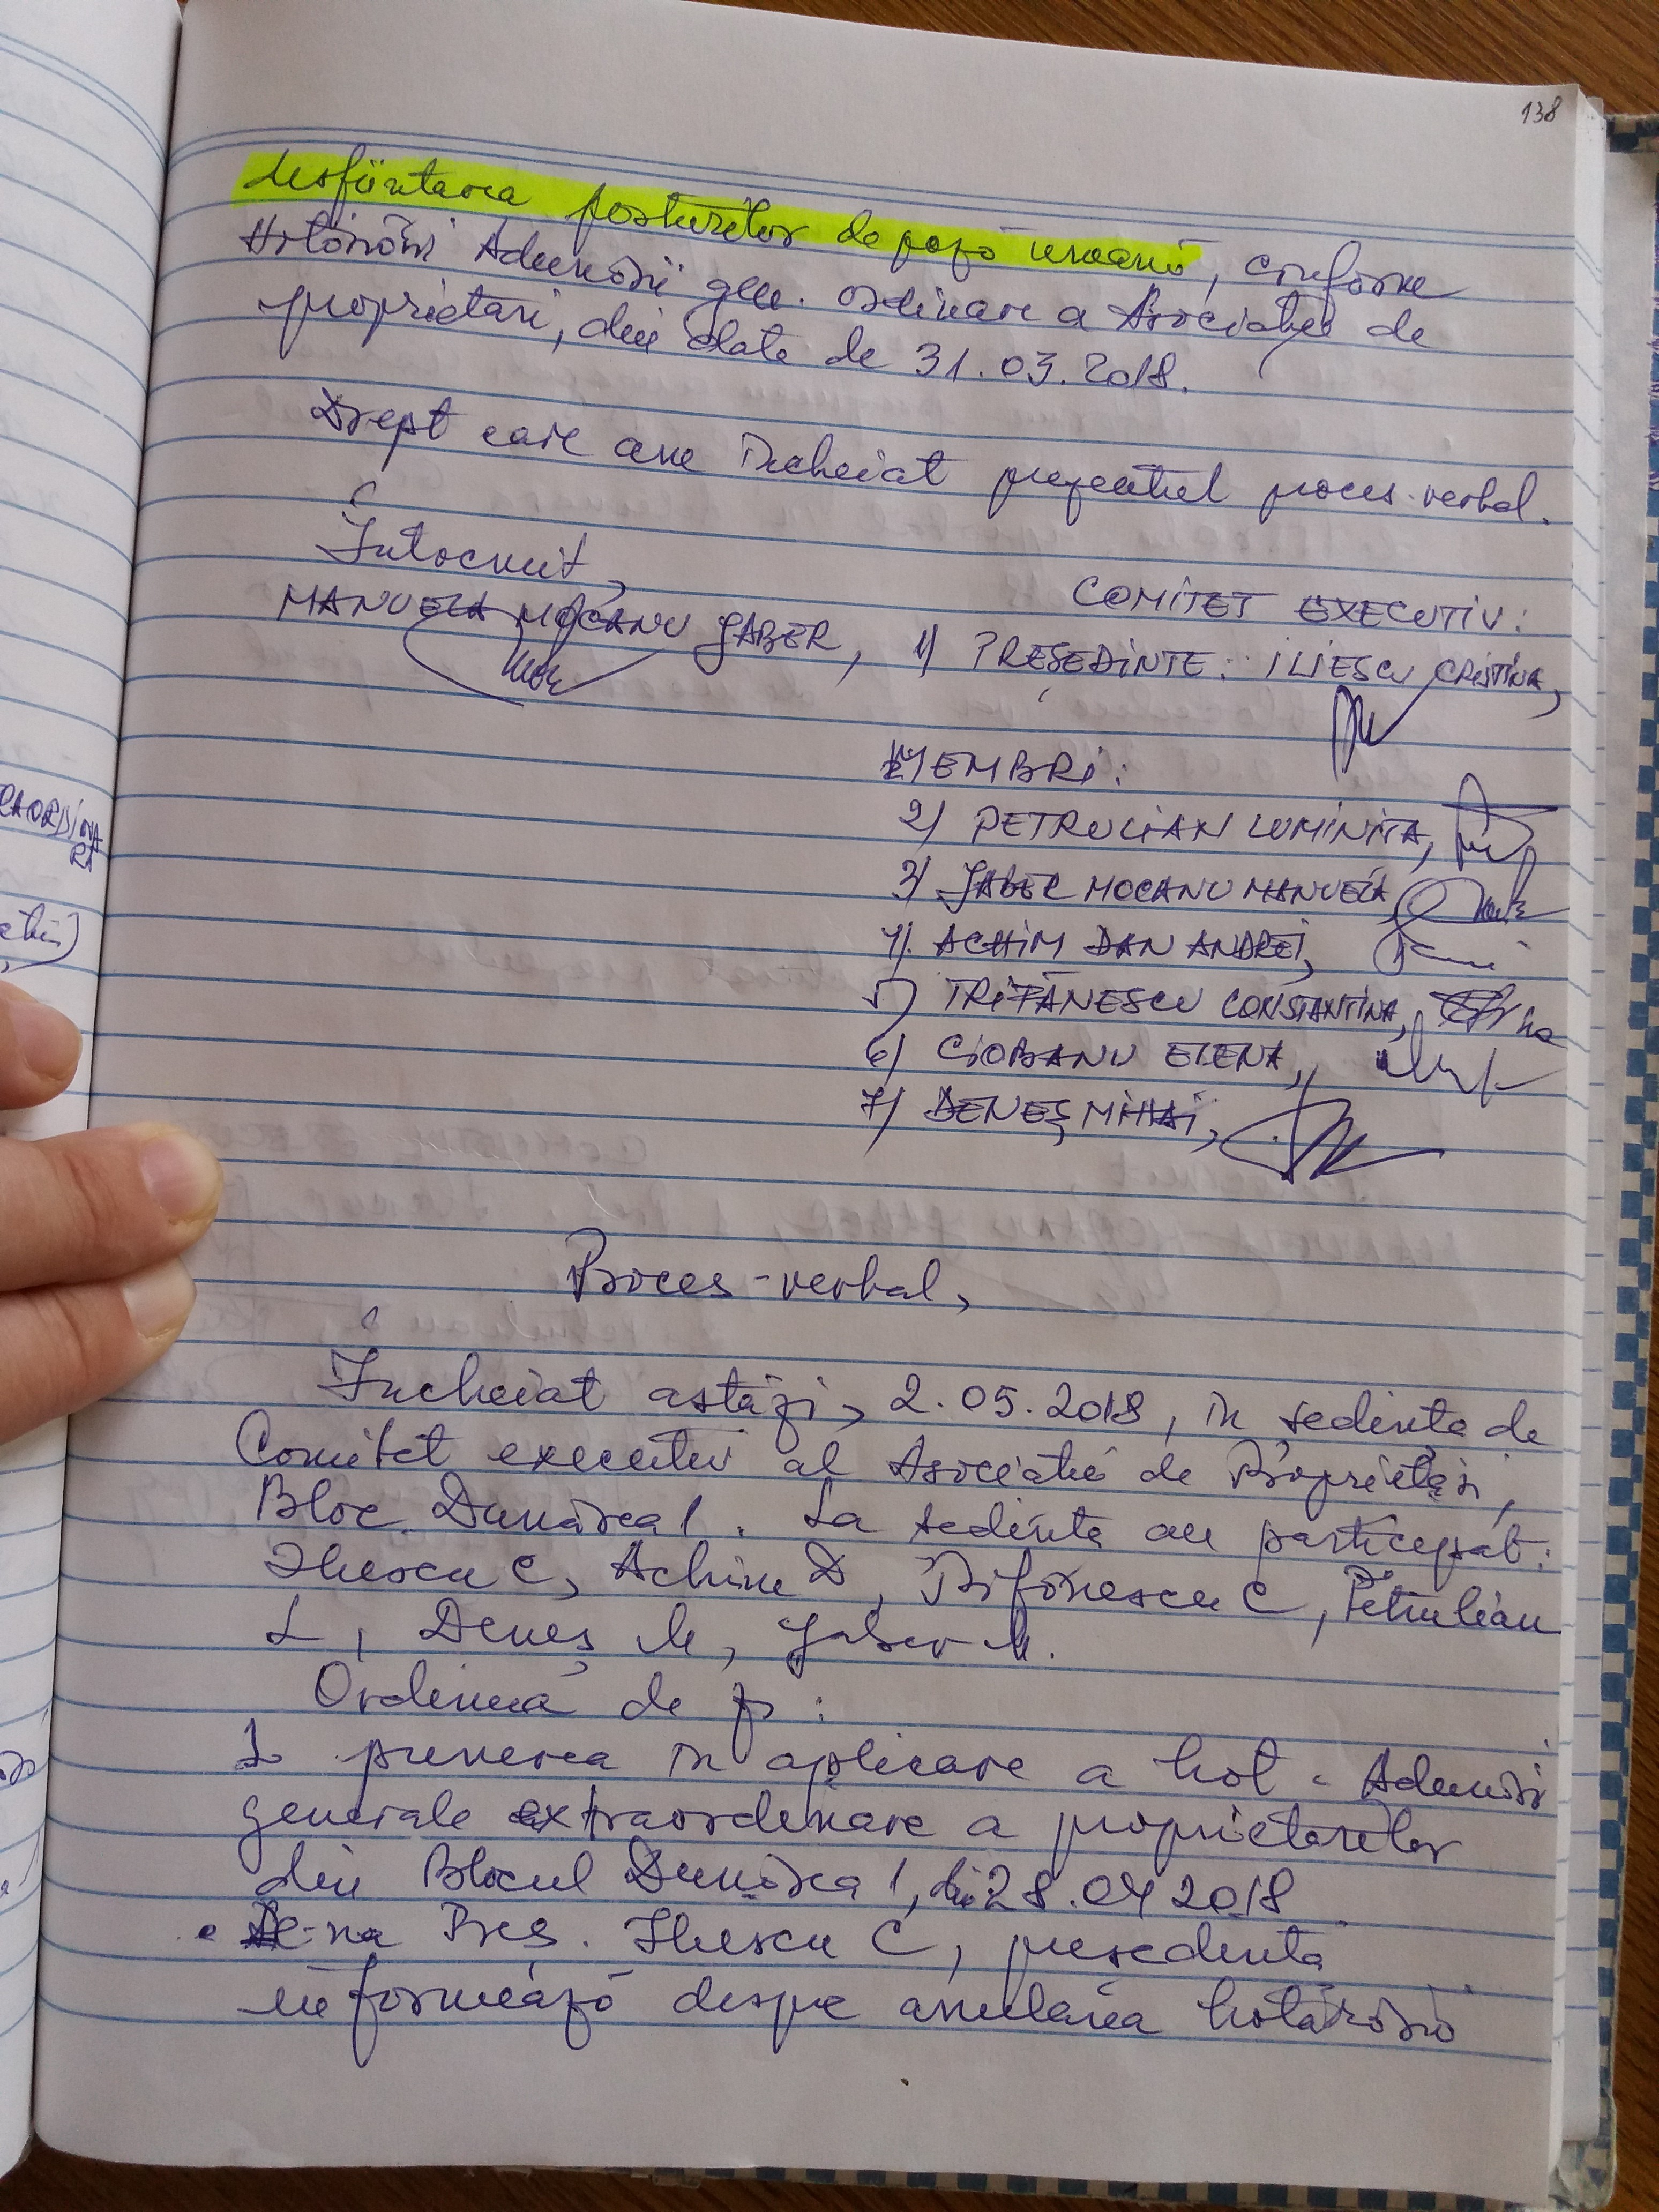 138
desființarea posturilor de pază umană, conform
Hotărârii Adunării gen. ordinare a Asociației de
proprietari, din data de 31.03.2018.
Drept care am încheiat prezentul proces-verbal.
Întocmit,
COMITET EXECUTIV:
MANUELA MOCANU GABER, 1) PREȘEDINTE: ILIESCU CRISTINA,
MEMBRI:
2) PETRULIAN LUMINITA,
3) GABER MOCANU MANUELA
4). ACHIM DAN ANDREI,
5) TRIFĂNESCU CONSTANTINA,
6) CIOBANU ELENA,
7) DENEȘ MIHAI,
Proces-verbal,
Încheiat astăzi, 2.05.2018, în ședința de
Comitet executiv al Asociației de Proprietari,
Bloc Dunărea 1. La ședință au participat:
Iliescu C, Achim D, Trifănescu C, Petrulian
L, Deneș M, Gaber M.
Ordinea de zi:
1. punerea în aplicare a hot. Adunării
generale extraordinare a proprietarilor
din Blocul Dunărea 1, din 28.04 2018
D-na Preș. Iliescu C, președinta
informează despre anularea hotărârii